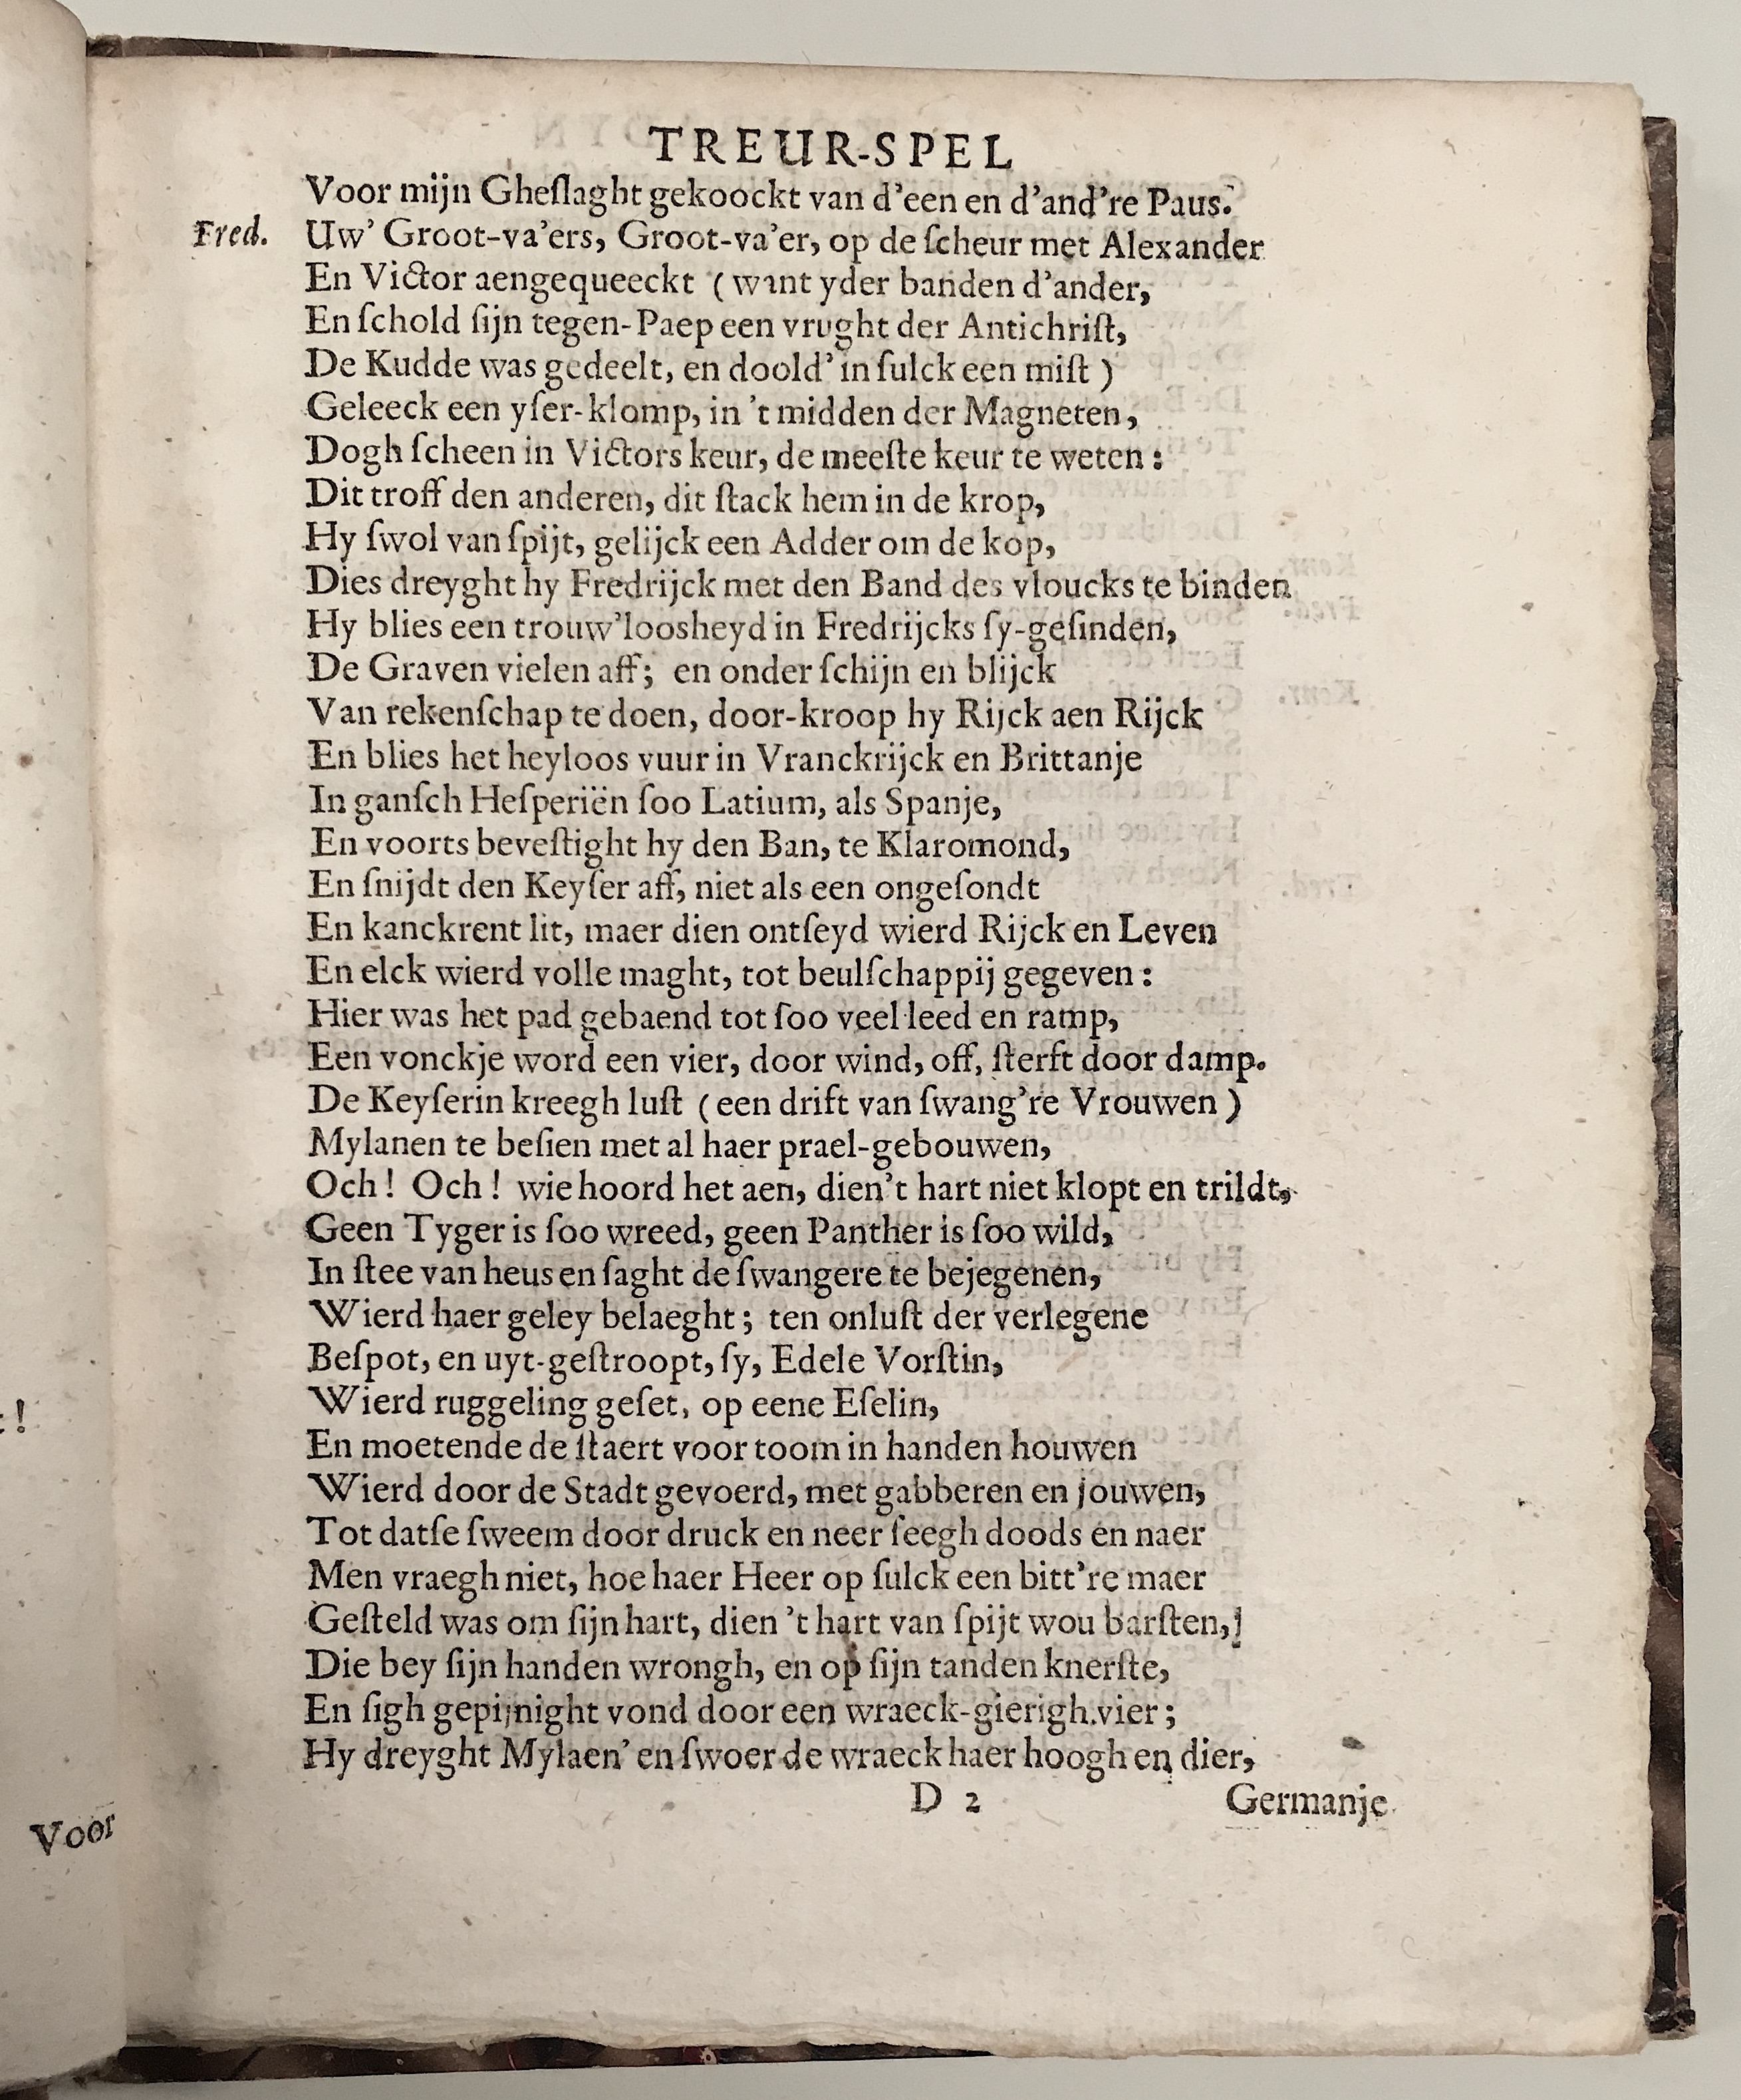 TREUR-SPEL
Voor mijn Gheſlaght gekoockt van d'een en d'and're Paus.
Fred. Uw' Groot-va'ers, Groot-va'er, op de ſcheur met Alexander
En Victor aengequeeckt (want yder banden d'ander,
En ſchold ſijn tegen-Paep een vrught der Antichriſt,
De Kudde was gedeelt, en doold' in ſulck een miſt)
Geleeck een yſer-klomp, in 't midden der Magneten,
Dogh ſcheen in Victors keur, de meeſte keur te weten:
Dit troff den anderen, dit ſtack hem in de krop,
Hy ſwol van ſpijt, gelijck een Adder om de kop,
Dies dreyght hy Fredrijck met den Band des vloucks te binden
Hy blies een trouw'loosheyd in Fredrijcks ſy-geſinden,
De Graven vielen aff; en onder ſchijn en blijck
Van rekenſchap te doen, door-kroop hy Rijck aen Rijck
En blies het heyloos vuur in Vranckrijck en Brittanje
In ganſch Heſperiën ſoo Latium, als Spanje,
En voorts beveſtight hy den Ban, te Klaromond,
En ſnijdt den Keyſer aff, niet als een ongeſondt
En kanckrent lit, maer dien ontſeyd wierd Rijck en Leven
En elck wierd volle maght, tot beulſchappij gegeven:
Hier was het pad gebaend tot ſoo veel leed en ramp,
Een vonckje word een vier, door wind, off, ſterft door damp.
De Keyſerin kreegh luſt (een drift van ſwang're Vrouwen)
Mylanen te beſien met al haer prael-gebouwen,
Och! Och! wie hoord het aen, dien't hart niet klopt en trildt,
Geen Tyger is ſoo wreed, geen Panther is ſoo wild,
In ſtee van heus en ſaght de ſwangere te bejegenen,
Wierd haer geley belaeght; ten onluſt der verlegene
Beſpot, en uyt-geſtroopt, ſy, Edele Vorſtin,
Wierd ruggeling geſet, op eene Eſelin,
En moetende de ſtaert voor toom in handen houwen
Wierd door de Stadt gevoerd, met gabberen en jouwen,
Tot datſe ſweem door druck en neer ſeegh doods en naer
Men vraegh niet, hoe haer Heer op ſulck een bitt're maer
Geſteld was om ſijn hart, dien 't hart van ſpijt wou barſten,
Die bey ſijn handen wrongh, en op ſijn tanden knerſte,
En ſigh gepijnight vond door een wraeck-gierigh vier;
Hy dreyght Mylaen' en ſwoer de wraeck haer hoogh en dier,
D 2 Germanje
Voor